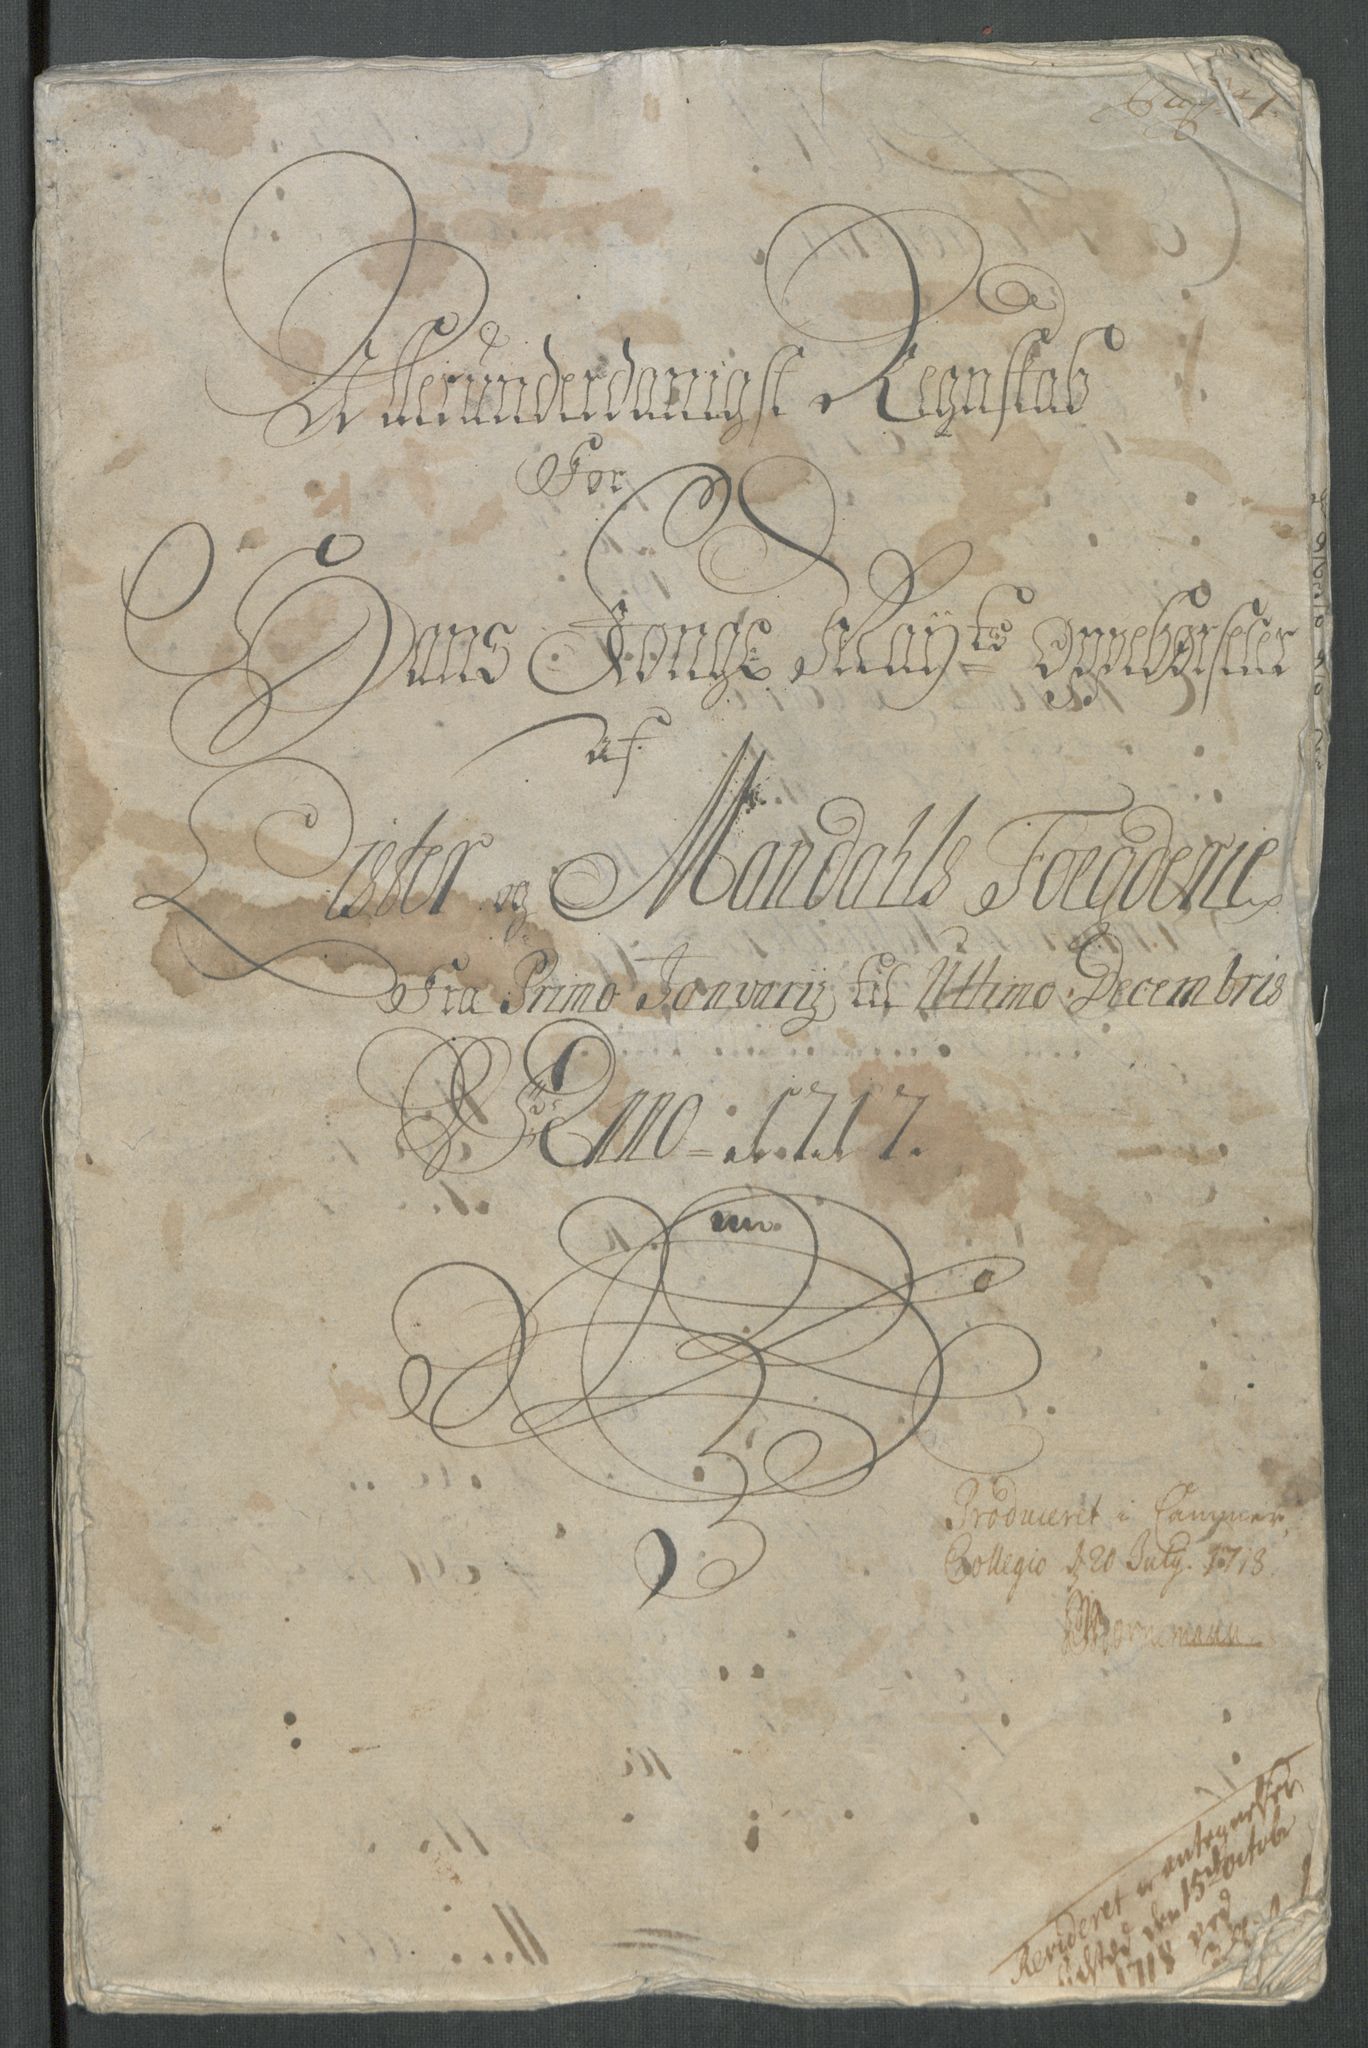 Allerunderdanigst Regnskab
For
Hans Konge: Mayts Oppebørseler
af
Lister og Mandahls Foegderie
Fra Primo Januarij til Ultimo Decembris
Anno = 1717.
Produceret i Cammer
Collegio d 20 July. 1718.
Bornemann
Revideret er antegnelser
den 15de Octobr
1718 ved